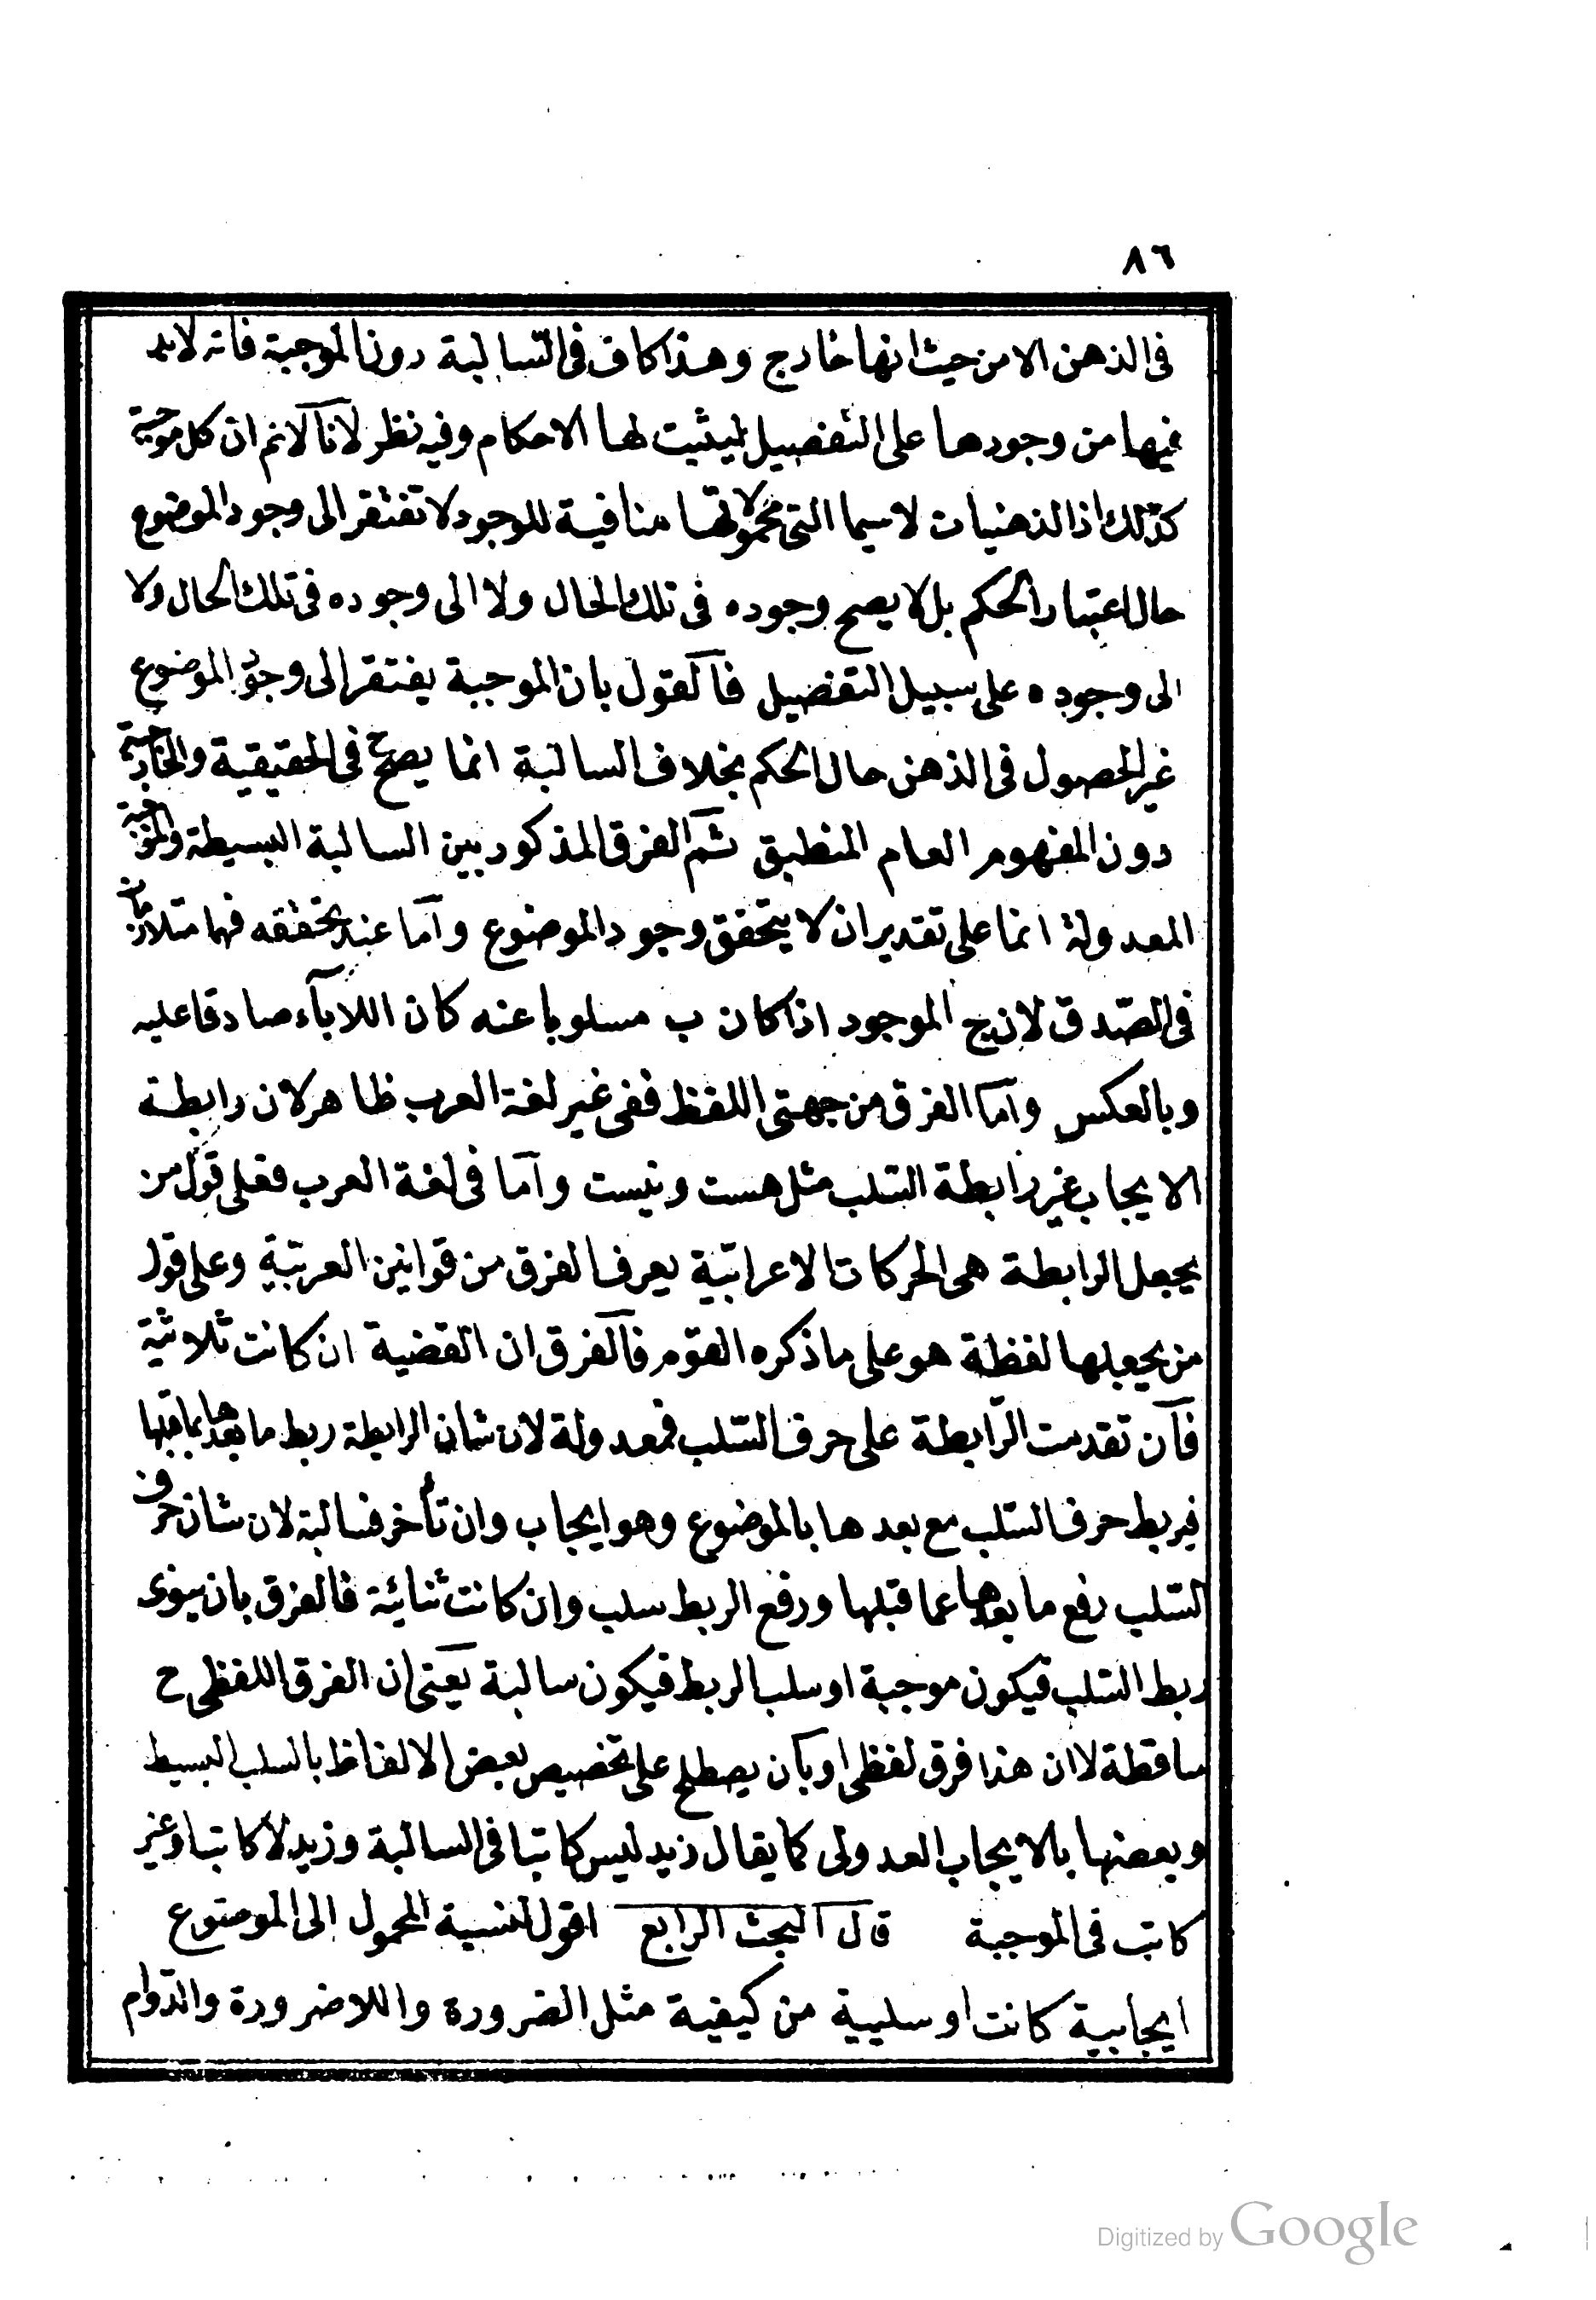 ٨٦
فى الذهن الا من حيث انها خارج وهذا كاف فى السالبة دون الموجبة فانه لابد
فيها من وجودها على التفصيل ليثبت لها الاحكام وفيه نظر لانا لانم ان كل موجبة
كذلك اذ الذهنيات لاسيما التى محمولاتها منافية للوجود لا تفتقر الى وجود الموضوع
حال اعتبار الحكم بل لا يصح وجوده فى تلك الحال ولا الى وجوده فى تلك الحال ولا
الى وجوده على سبيل التفصيل فالقول بان الموجبة يفتقر الى وجود الموضوع
غير الحصول فى الذهن حال الحكم بخلاف السالبة انما يصح فى الحقيقية والخارجية
دون المفهوم العام المنطبق ثم الفرق المذكور بين السالبة البسيطة والموجبة
المعدولة انما على تقدير ان لا يتحقق وجود الموضوع واما عند تحققه فهما متلازمان
فى الصدق لان ج الموجود اذا كان ب مسلوبا عنه كان اللاباء صادقا عليه
وبالعكس واما الفرق من جهتى اللفظ ففى غير لغة العرب ظاهر لان رابطة
الايجاب غير رابطة السلب مثل هست ونيست واما فى لغة العرب فعلى قول من
يجعل الرابطة هى الحركات الاعرابية يعرف الفرق من قوانين العربية وعلى قول
من يجعلها لفظة هو على ما ذكره القوم فالفرق ان القضية ان كانت ثلاثية
فان تقدمت الرابطة على حرف السلب فمعدولة لان شان الرابطة ربط ما بعدها بما قبلها
فيربط حرف السلب مع بعدها بالموضوع وهو ايجاب وان تأخر فسالبة لان شان حرف
السلب رفع ما بعدها عما قبلها ورفع الربط سلب وان كانت ثنائية فالفرق بان ينوى
ربط السلب فيكون موجبة او سلب الربط فيكون سالبة يعنى ان الفرق اللفظى ح
ساقطة لا ان هذا فرق لفظى او بان يصطلح على تخصيص بعض الالفاظ بالسلب البسيط
وبعضها بالايجاب العدولى كما يقال زيد ليس كاتبا فى السالبة وزيد لا كاتبا وغير
كاتب فى الموجبة قال البحث الرابع اقول لنسبة المحمول الى الموضوع
ايجابية كانت او سلبية من كيفية مثل الضرورة واللاضرورة والدوام
Digitized by Google